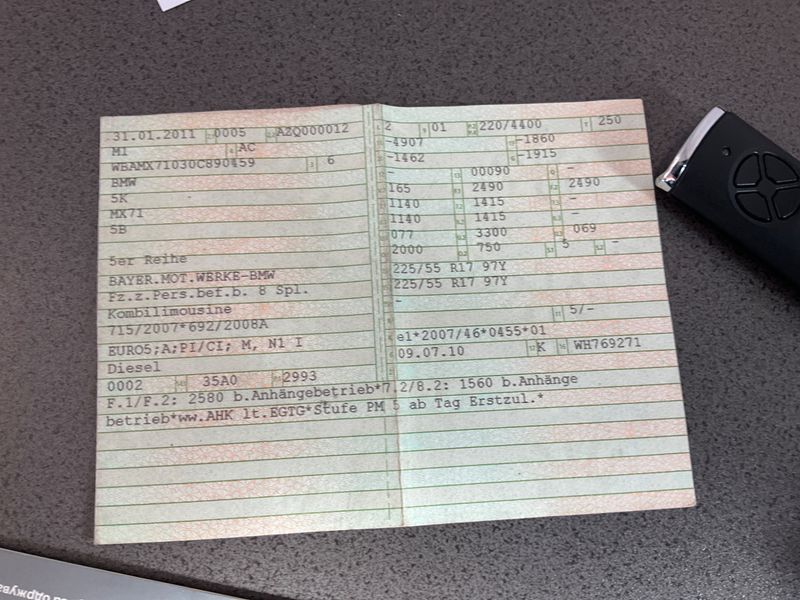 31.01.2011 0005 AZQ000012
M1 AC
WBAMX71030C890459 6
BMW
5K
MX71
5B
5er Reihe
BAYER.MOT.WERKE-BMW
Fz.z.Pers.bef.b. 8 Spl.
Kombilimousine
715/2007*692/2008A
EURO5;A;PI/CI; M, N1 I
Diesel
0002 35A0 2993
2 01 220/4400 250
-4907 -1860
-1462 -1915
- 00090 -
165 2490 2490
1140 1415 -
1140 1415 -
077 3300 069
2000 750 5 -
225/55 R17 97Y
225/55 R17 97Y
-
5/-
e1*2007/46*0455*01
09.07.10 K WH769271
F.1/F.2: 2580 b.Anhängebetrieb*7.2/8.2: 1560 b.Anhänge
betrieb*ww.AHK lt.EGTG*Stufe PM 5 ab Tag Erstzul.*